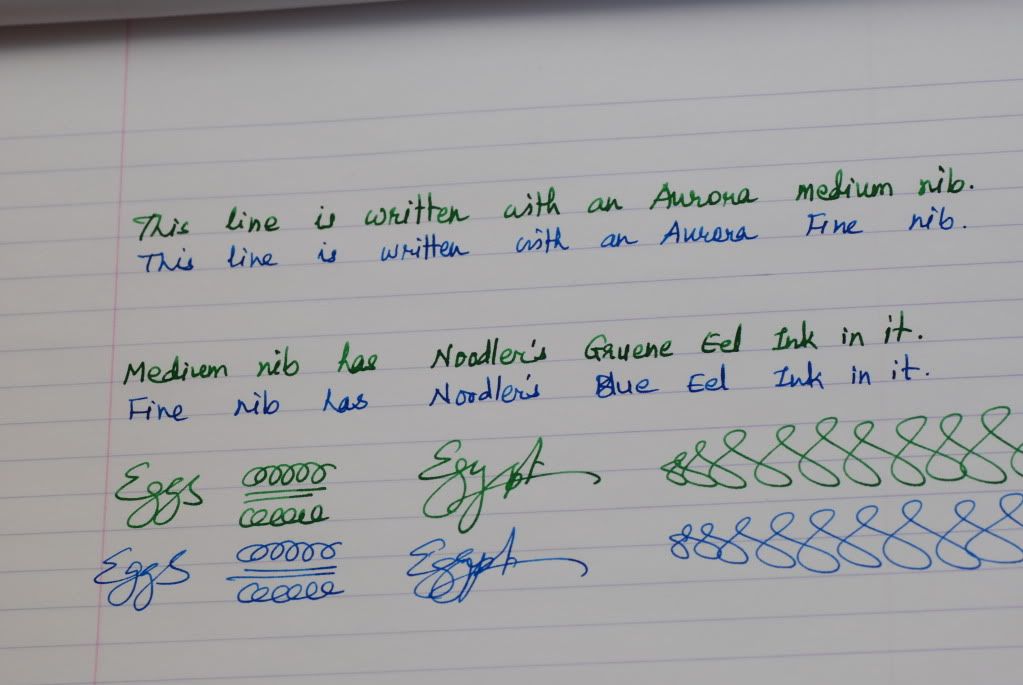 This line is written with an Aurora medium nib.
This line is written with an Aurora Fine nib.
Medium nib has Noodler's Gruene Eel Ink in it.
Fine nib has Noodler's Blue Eel Ink in it.
Eggs Egypt
Eggs Egypt